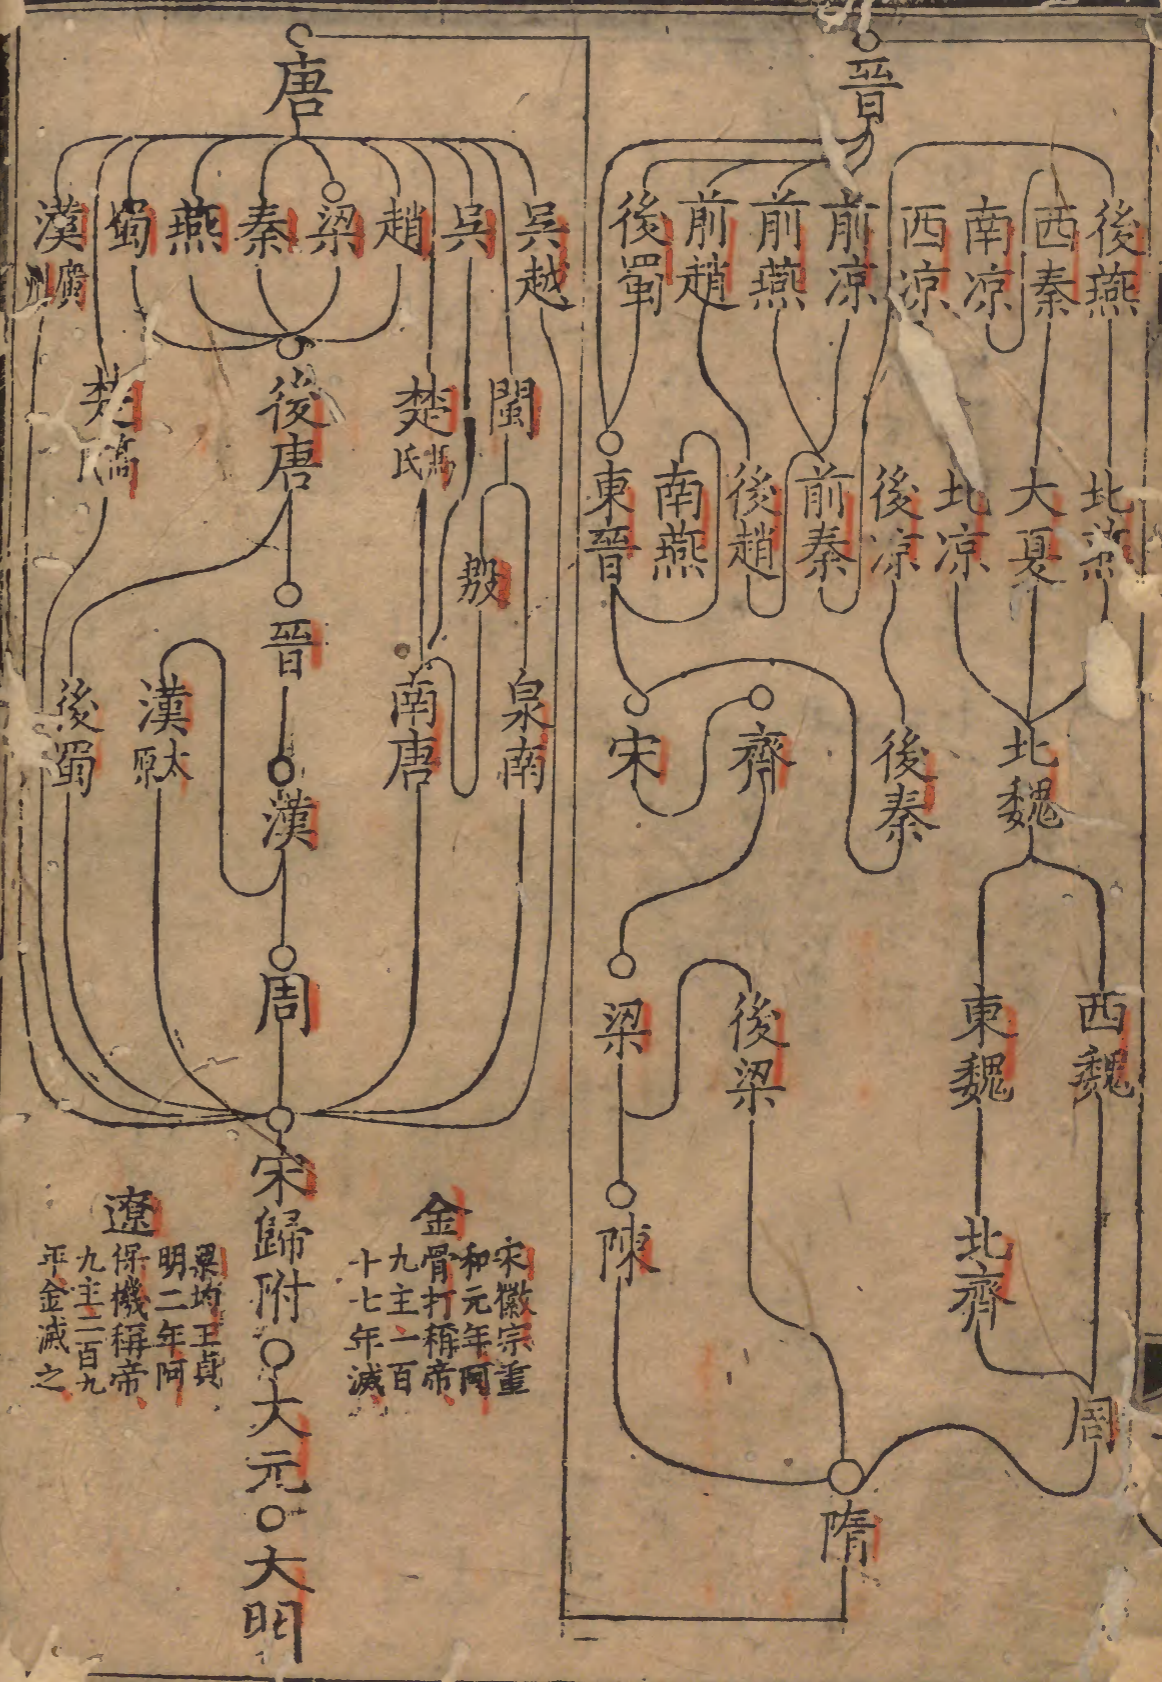 晉
後燕
西秦
南凉
西凉
前凉
前燕
前趙
後蜀
北燕
大夏
北凉
後凉
前秦
後趙
南燕
東晉
北魏
後秦
齊
宋
西魏
東魏
後梁
梁
北齊
陳
周
隋
唐
吳越
吳
趙
梁
秦
燕
蜀
漢
廣州
閩
楚
馬氏
後唐
楚
高氏
殷
晉
泉南
南唐
漢
漢
太原
後蜀
周
宋歸附
大元
大明
金
宋徽宗重
和元年阿
骨打稱帝
九主一百
十七年滅
遼
梁均王貞
明二年阿
保機稱帝
九主二百九
年金滅之